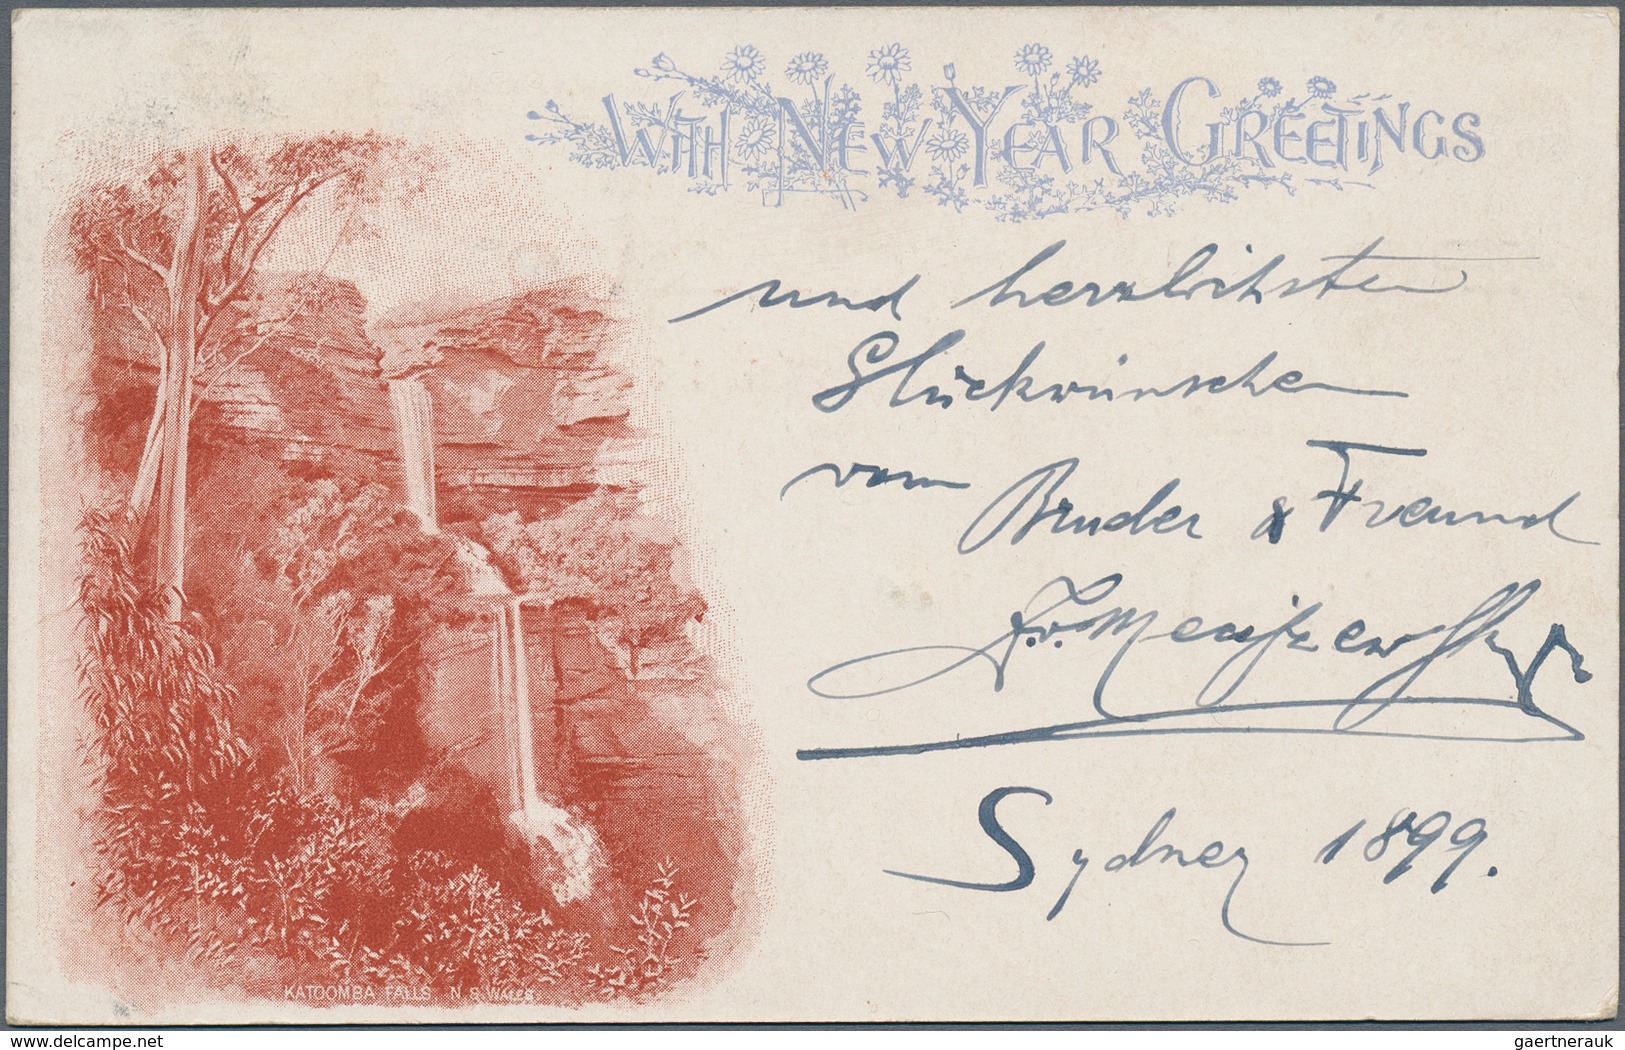 WITH NEW YEAR GREETINGS
und herzlichsten
Glückwünschen
vom Bruder & Freund
Sydney 1899.
KATOOMBA FALLS, N. S. WALES
delcampe.net
gaertnerauk